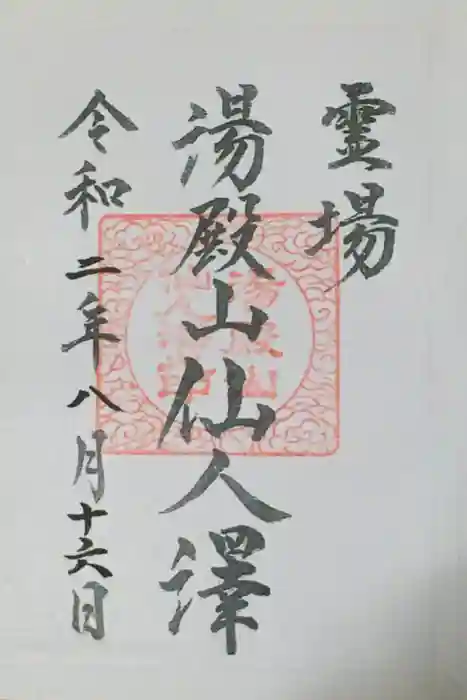 霊場
湯殿山仙人澤
令和二年八月十六日